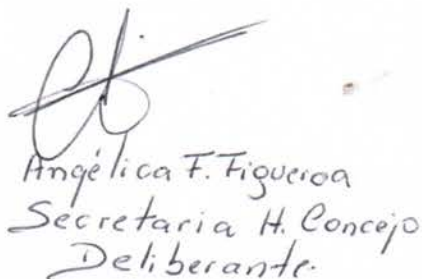 Angélica F. Figueroa
Secretaria H. Concejo
Deliberante.